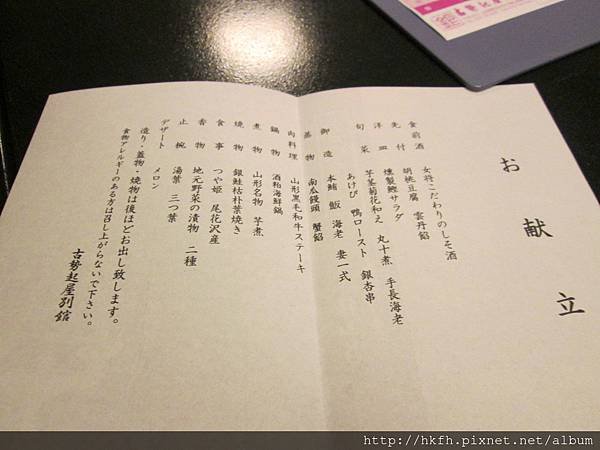 お献立
食前酒 女将こだわりのしそ酒
先付 胡桃豆腐 雲丹餡
洋皿 燻製鰹サラダ
旬菜 芋茎菊花和え 丸十煮 手長海老
あけび 鴨ロースト 銀杏串
御造 本鮪 鯛 海老 妻一式
蒸物 南瓜饅頭 蟹餡
肉料理 山形黒毛和牛ステーキ
鍋物 酒粕海鮮鍋
煮物 山形名物 芋煮
焼物 銀鮭枯朴葉焼き
食事 つや姫 尾花沢産
香物 地元野菜の漬物 二種
止椀 湯葉 三つ葉
デザート メロン
造り・蓋物・焼物は後ほどお出し致します。
食物アレルギーのある方は召し上がらないで下さい。
古勢起屋別館
http://hkfh.pixnet.net/album